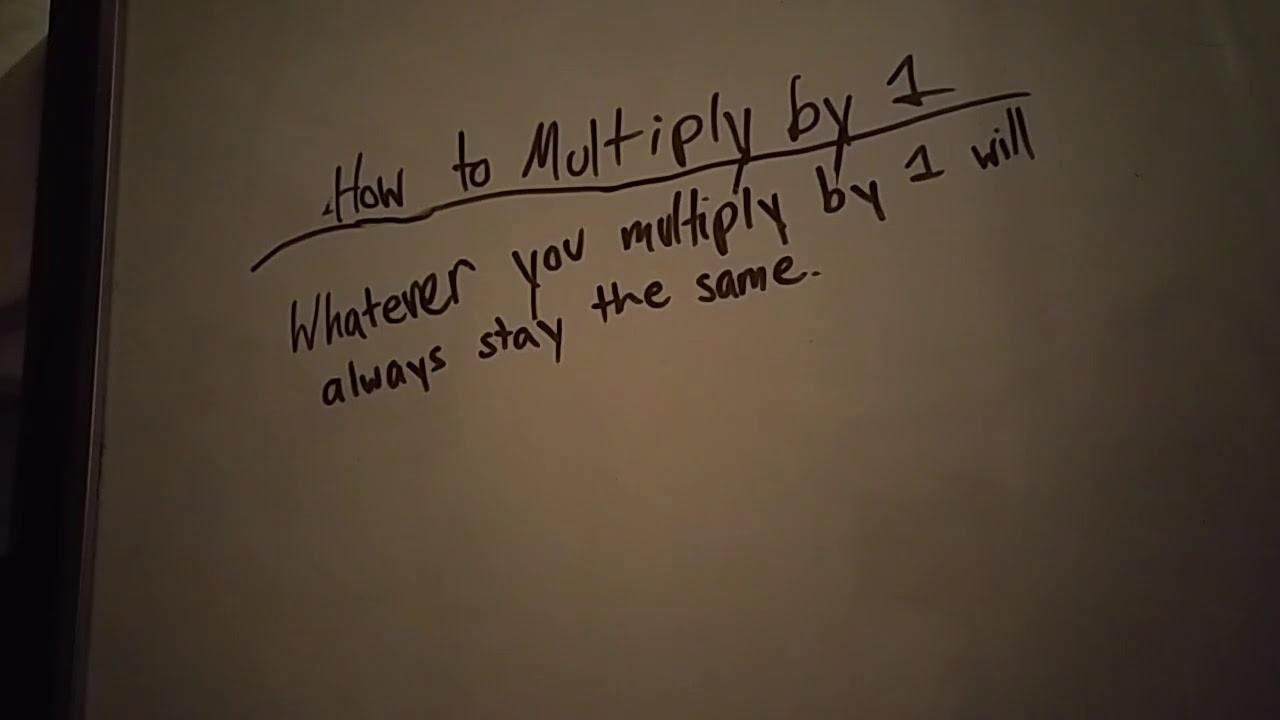 How to Multiply by 1
Whatever you multiply by 1 will
always stay the same.